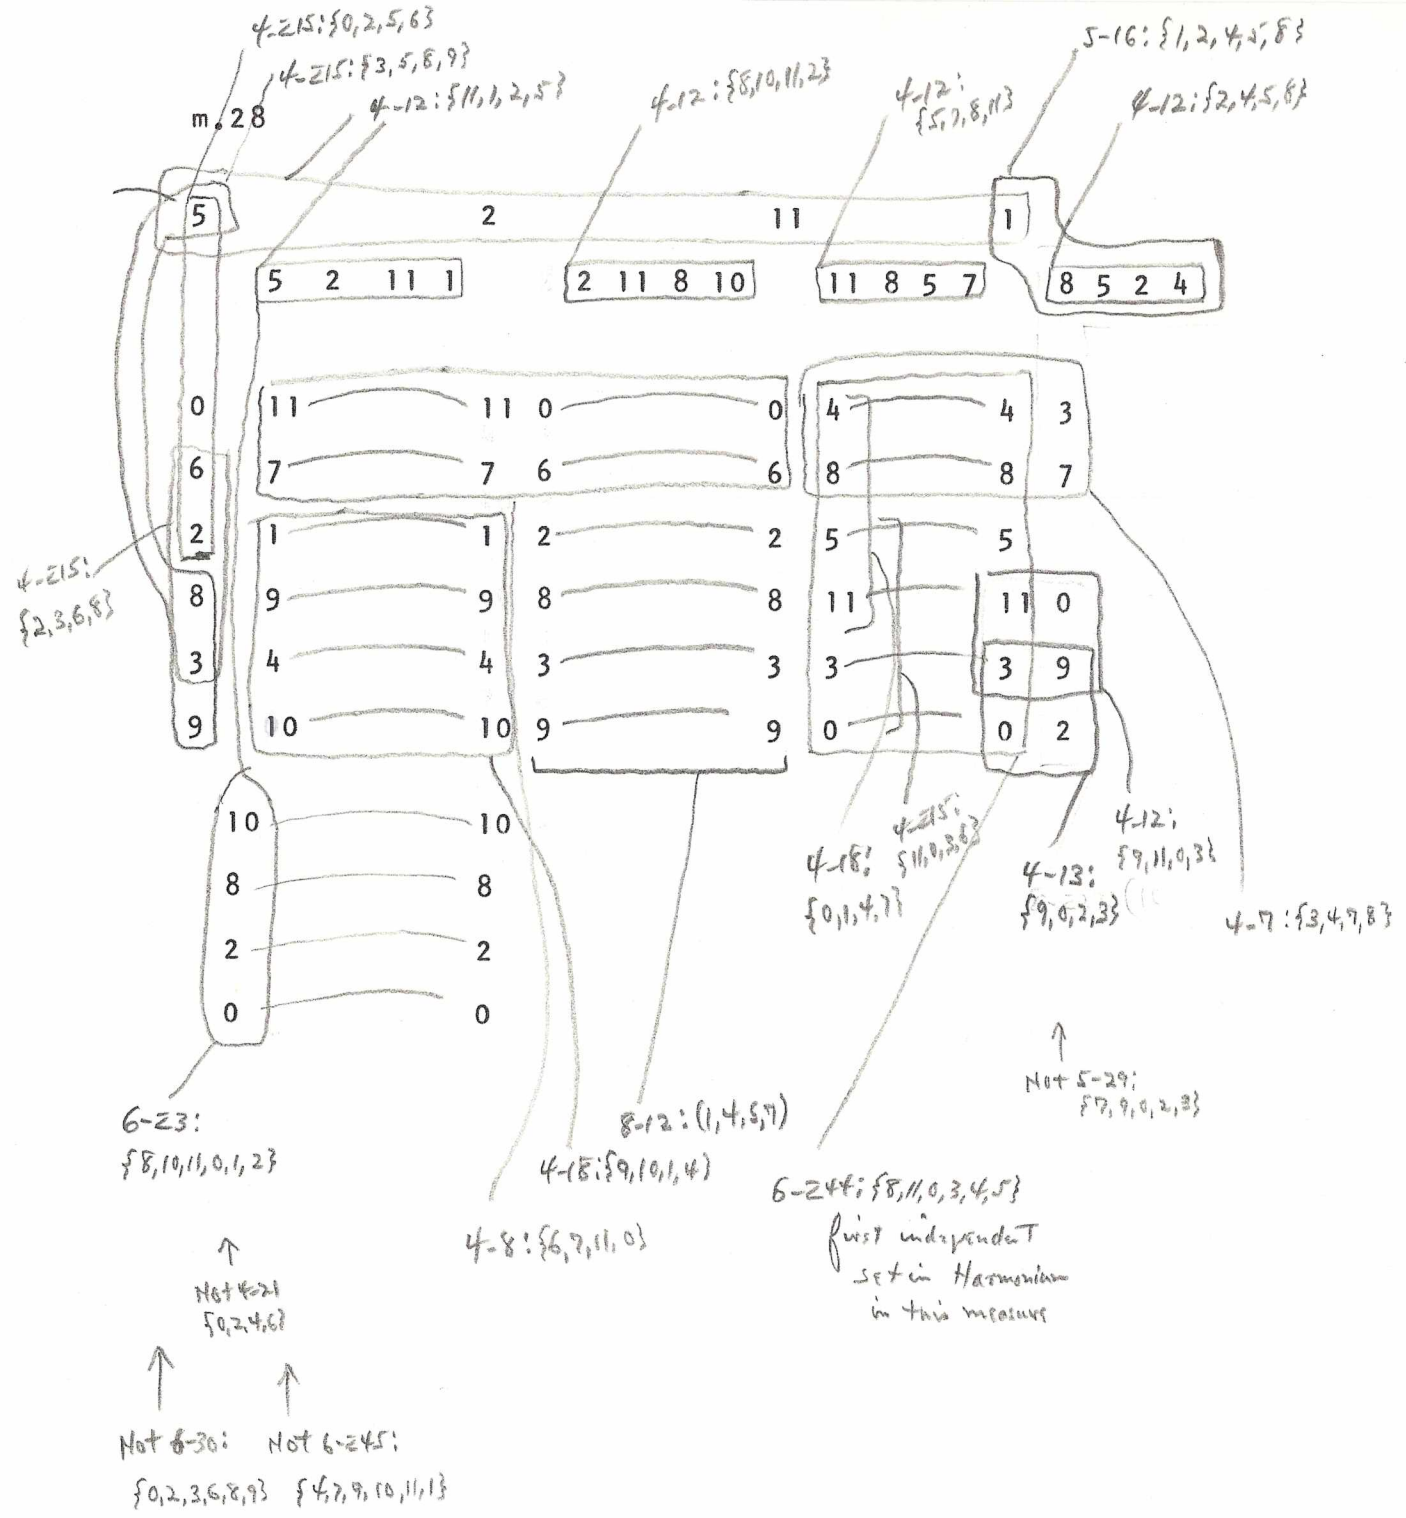 4-Z15:{0,2,5,6}
4-Z15:{3,5,8,9}
4-12:{11,1,2,5}
4-12:{8,10,11,2}
4-12:
{5,7,8,11}
5-16:{1,2,4,5,8}
4-12:{2,4,5,8}
m.28
5 2 11 1
5 2 11 1 2 11 8 10 11 8 5 7 8 5 2 4
0 11 11 0 0 4 4 3
6 7 7 6 6 8 8 7
2 1 1 2 2 5 5
4-Z15:
{2,3,6,8}
8 9 9 8 8 11 11 0
3 4 4 3 3 3 3 9
9 10 10 9 9 0 0 2
10 10
8 8
2 2
0 0
4-18:
{0,1,4,7}
4-Z15:
{11,0,3,5}
4-13:
{9,0,2,3}
4-12:
{9,11,0,3}
4-7:{3,4,7,8}
Not 5-29:
{7,9,0,2,3}
6-Z3:
{8,10,11,0,1,2}
8-12:(1,4,5,7)
4-18:{9,10,1,4}
4-8:{6,7,11,0}
6-Z44:{8,11,0,3,4,5}
first independent
set in Harmonium
in this measure
Not 4-21
{0,2,4,6}
Not 6-30:
{0,2,3,6,8,9}
Not 6-Z45:
{4,7,9,10,11,1}